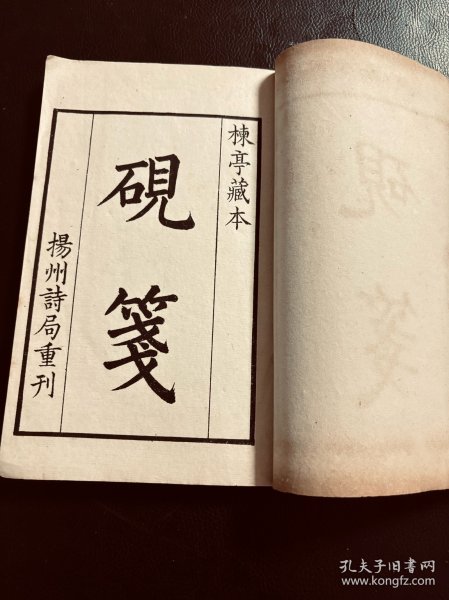 楝亭藏本
硯箋
揚州詩局重刊
孔夫子旧书网
www.kongfz.com